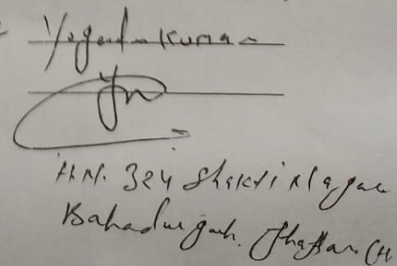 Yogendra Kumar
H.N. 324 Shakti Nagar
Bahadurgarh. Jhajjar (H